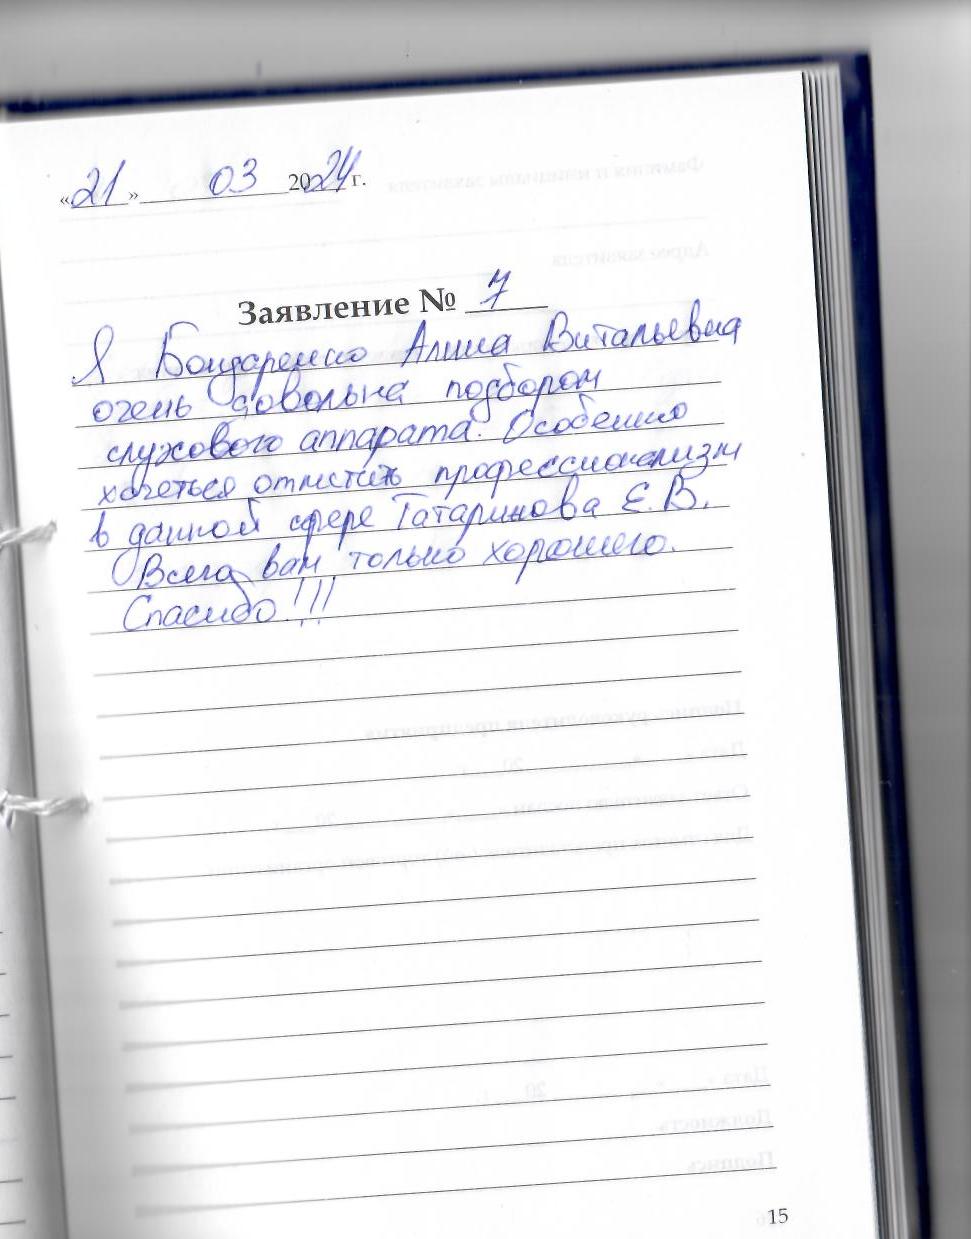 «21» 03 2024 г.
Заявление № 7
Я Бондаренко Алина Витальевна
очень довольна подбором
слухового аппарата. Особенно
хочеться отметить профессионализм
в данной сфере Татаринова Е.В.
Всего вам только хорошего.
Спасибо!!!
15